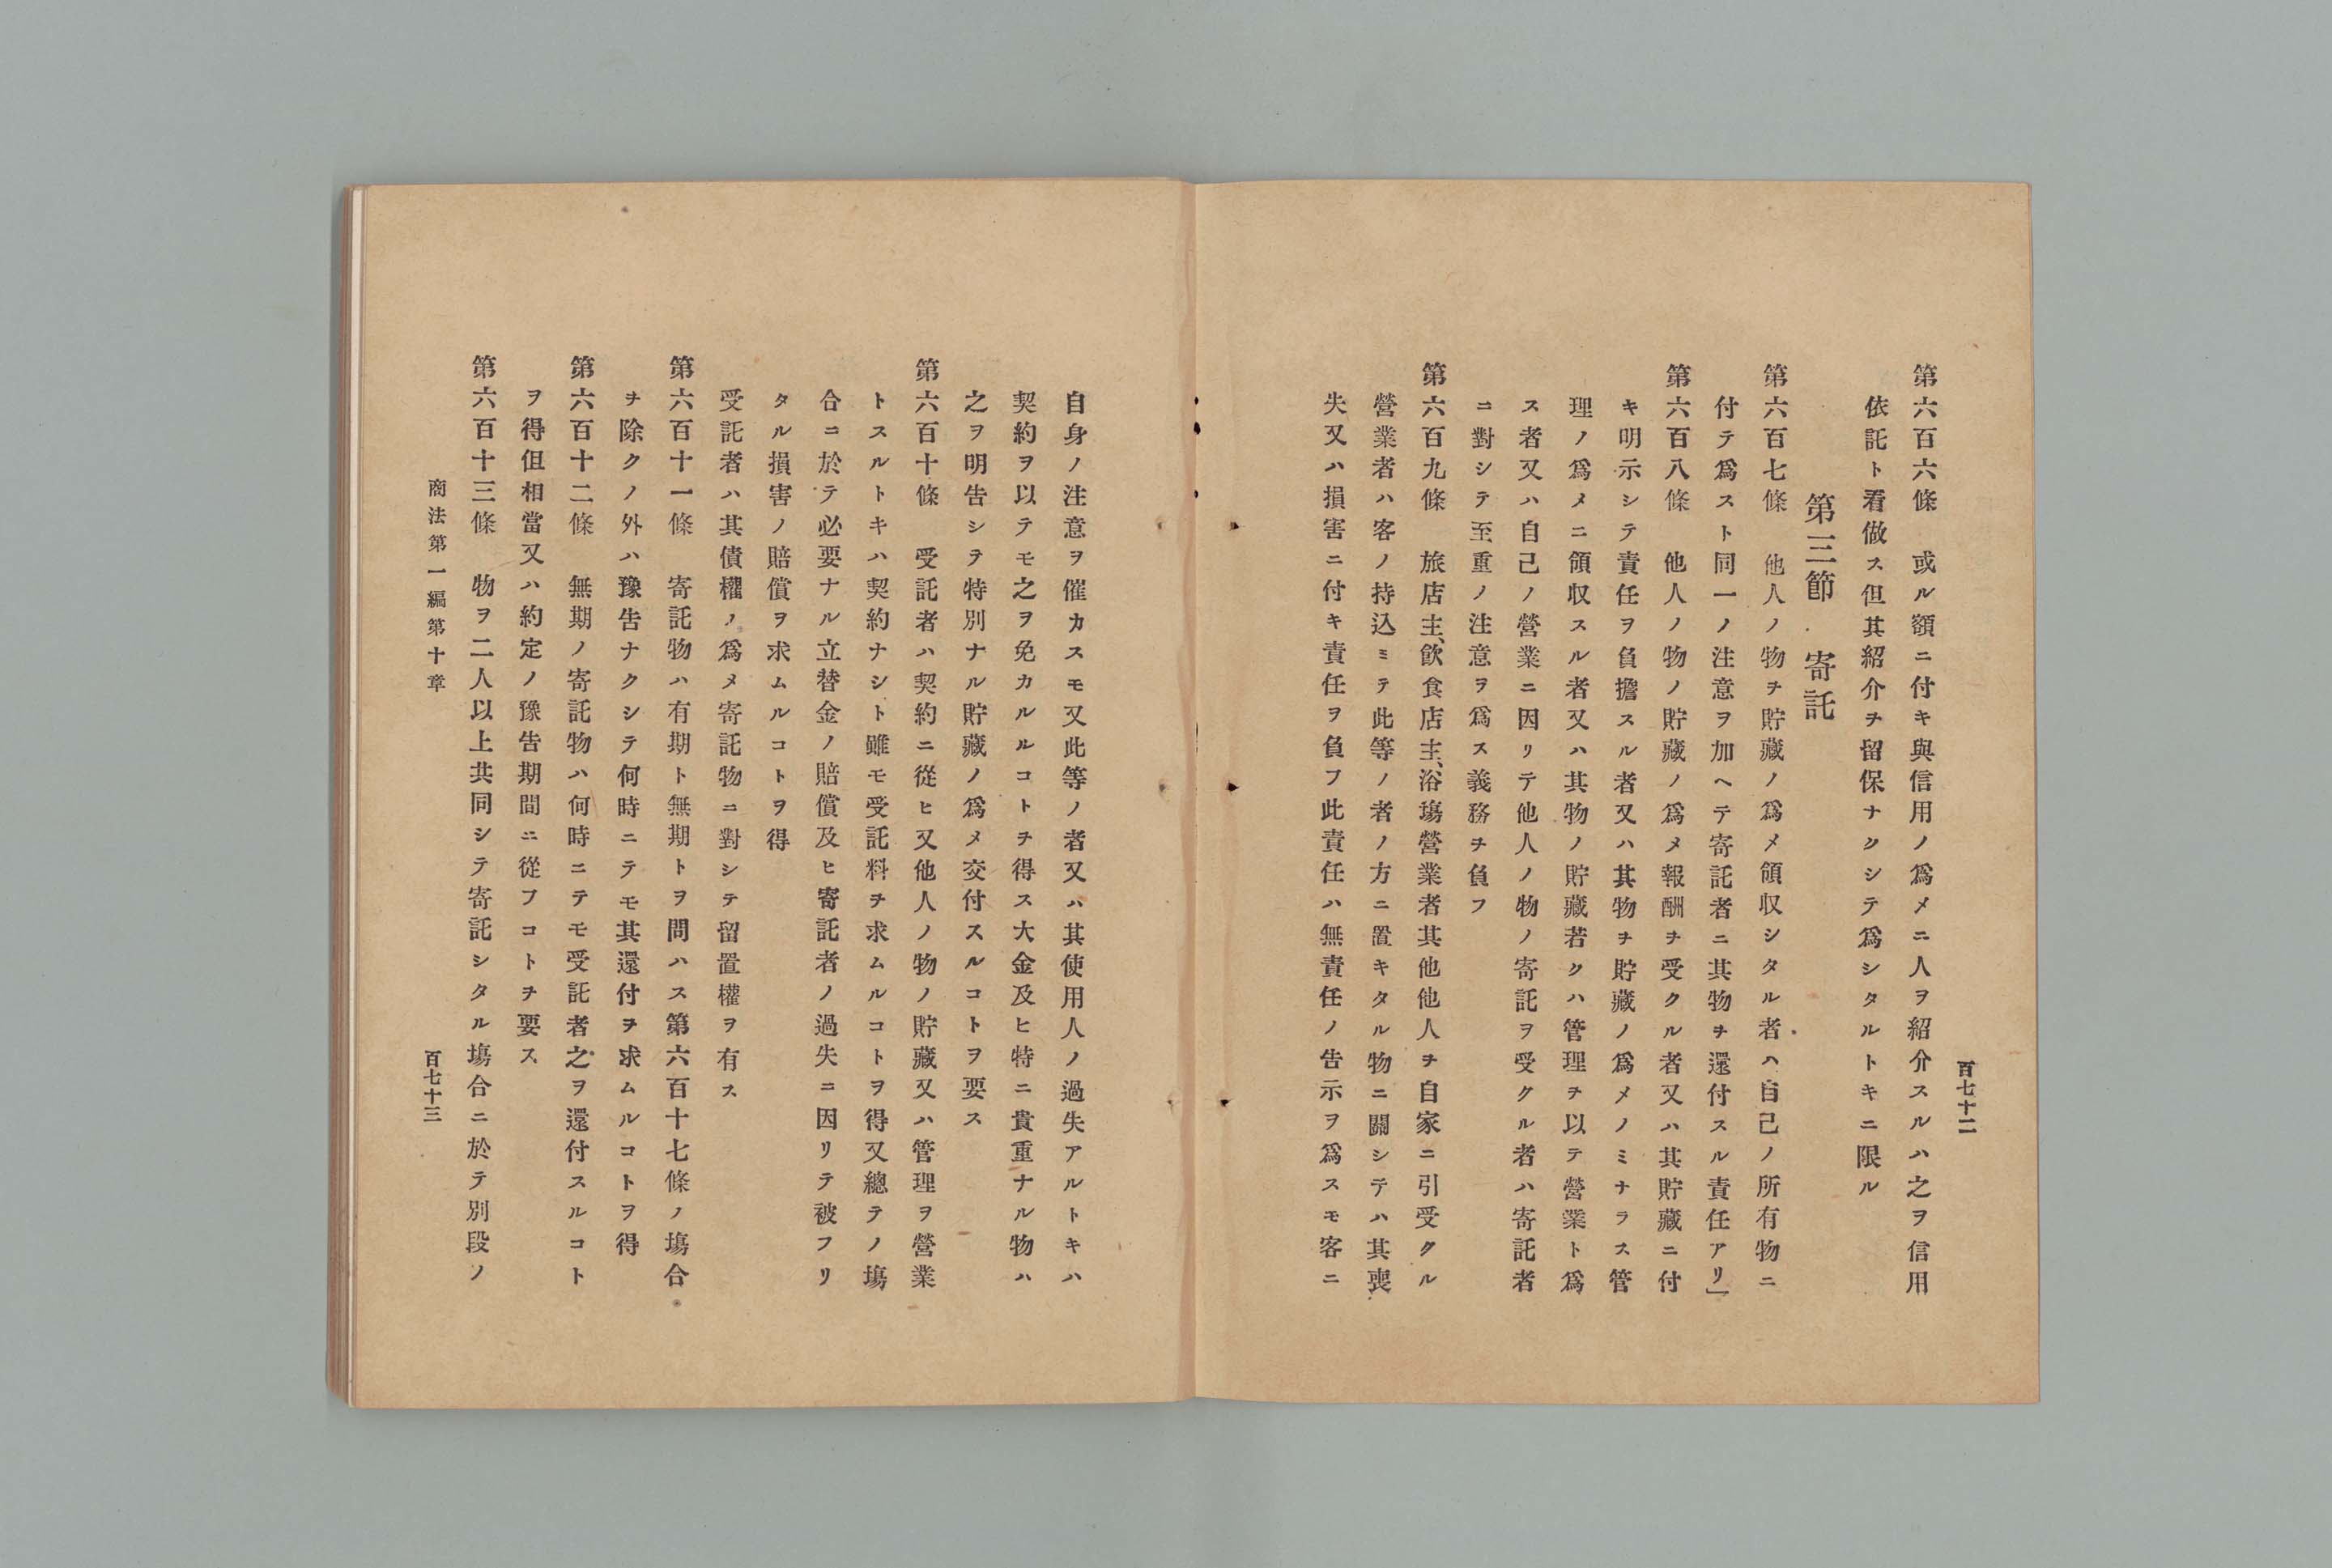 百七十二
第六百六條　或ル額ニ付キ與信用ノ爲メニ人ヲ紹介スルハ之ヲ信用
依託ト看做ス但其紹介ヲ留保ナクシテ爲シタルトキニ限ル
第三節　寄託
第六百七條　他人ノ物ヲ貯藏ノ爲メ領収シタル者ハ自己ノ所有物ニ
付テ爲スト同一ノ注意ヲ加ヘテ寄託者ニ其物ヲ還付スル責任アリ」
第六百八條　他人ノ物ノ貯藏ノ爲メ報酬ヲ受クル者又ハ其貯藏ニ付
キ明示シテ責任ヲ負擔スル者又ハ其物ヲ貯藏ノ爲メノミナラス管
理ノ爲メニ領収スル者又ハ其物ノ貯藏若クハ管理ヲ以テ營業ト爲
ス者又ハ自己ノ營業ニ因リテ他人ノ物ノ寄託ヲ受クル者ハ寄託者
ニ對シテ至重ノ注意ヲ爲ス義務ヲ負フ
第六百九條　旅店主、飮食店主、浴塲營業者其他他人ヲ自家ニ引受クル
營業者ハ客ノ持込ミテ此等ノ者ノ方ニ置キタル物ニ關シテハ其喪
失又ハ損害ニ付キ責任ヲ負フ此責任ハ無責任ノ告示ヲ爲スモ客ニ
自身ノ注意ヲ催カスモ又此等ノ者又ハ其使用人ノ過失アルトキハ
契約ヲ以テモ之ヲ免カルルコトヲ得ス大金及ヒ特ニ貴重ナル物ハ
之ヲ明告シテ特別ナル貯藏ノ爲メ交付スルコトヲ要ス
第六百十條　受託者ハ契約ニ從ヒ又他人ノ物ノ貯藏又ハ管理ヲ營業
トスルトキハ契約ナシト雖モ受託料ヲ求ムルコトヲ得又總テノ塲
合ニ於テ必要ナル立替金ノ賠償及ヒ寄託者ノ過失ニ因リテ被フリ
タル損害ノ賠償ヲ求ムルコトヲ得
受託者ハ其債權ノ爲メ寄託物ニ對シテ留置權ヲ有ス
第六百十一條　寄託物ハ有期ト無期トヲ問ハス第六百十七條ノ塲合
ヲ除クノ外ハ豫告ナクシテ何時ニテモ其還付ヲ求ムルコトヲ得
第六百十二條　無期ノ寄託物ハ何時ニテモ受託者之ヲ還付スルコト
ヲ得但相當又ハ約定ノ豫告期間ニ從フコトヲ要ス
第六百十三條　物ヲ二人以上共同シテ寄託シタル塲合ニ於テ別段ノ
商法第一編第十章
百七十三